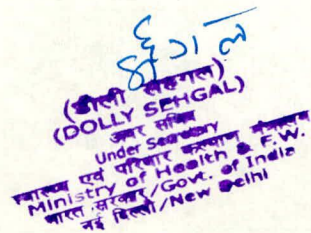 (डौली सहगल)
(DOLLY SEHGAL)
अवर सचिव
Under Secretary
स्वास्थ्य एवं परिवार कल्याण मंत्रालय
Ministry of Health & F.W.
भारत सरकार/Govt. of India
नई दिल्ली/New Delhi